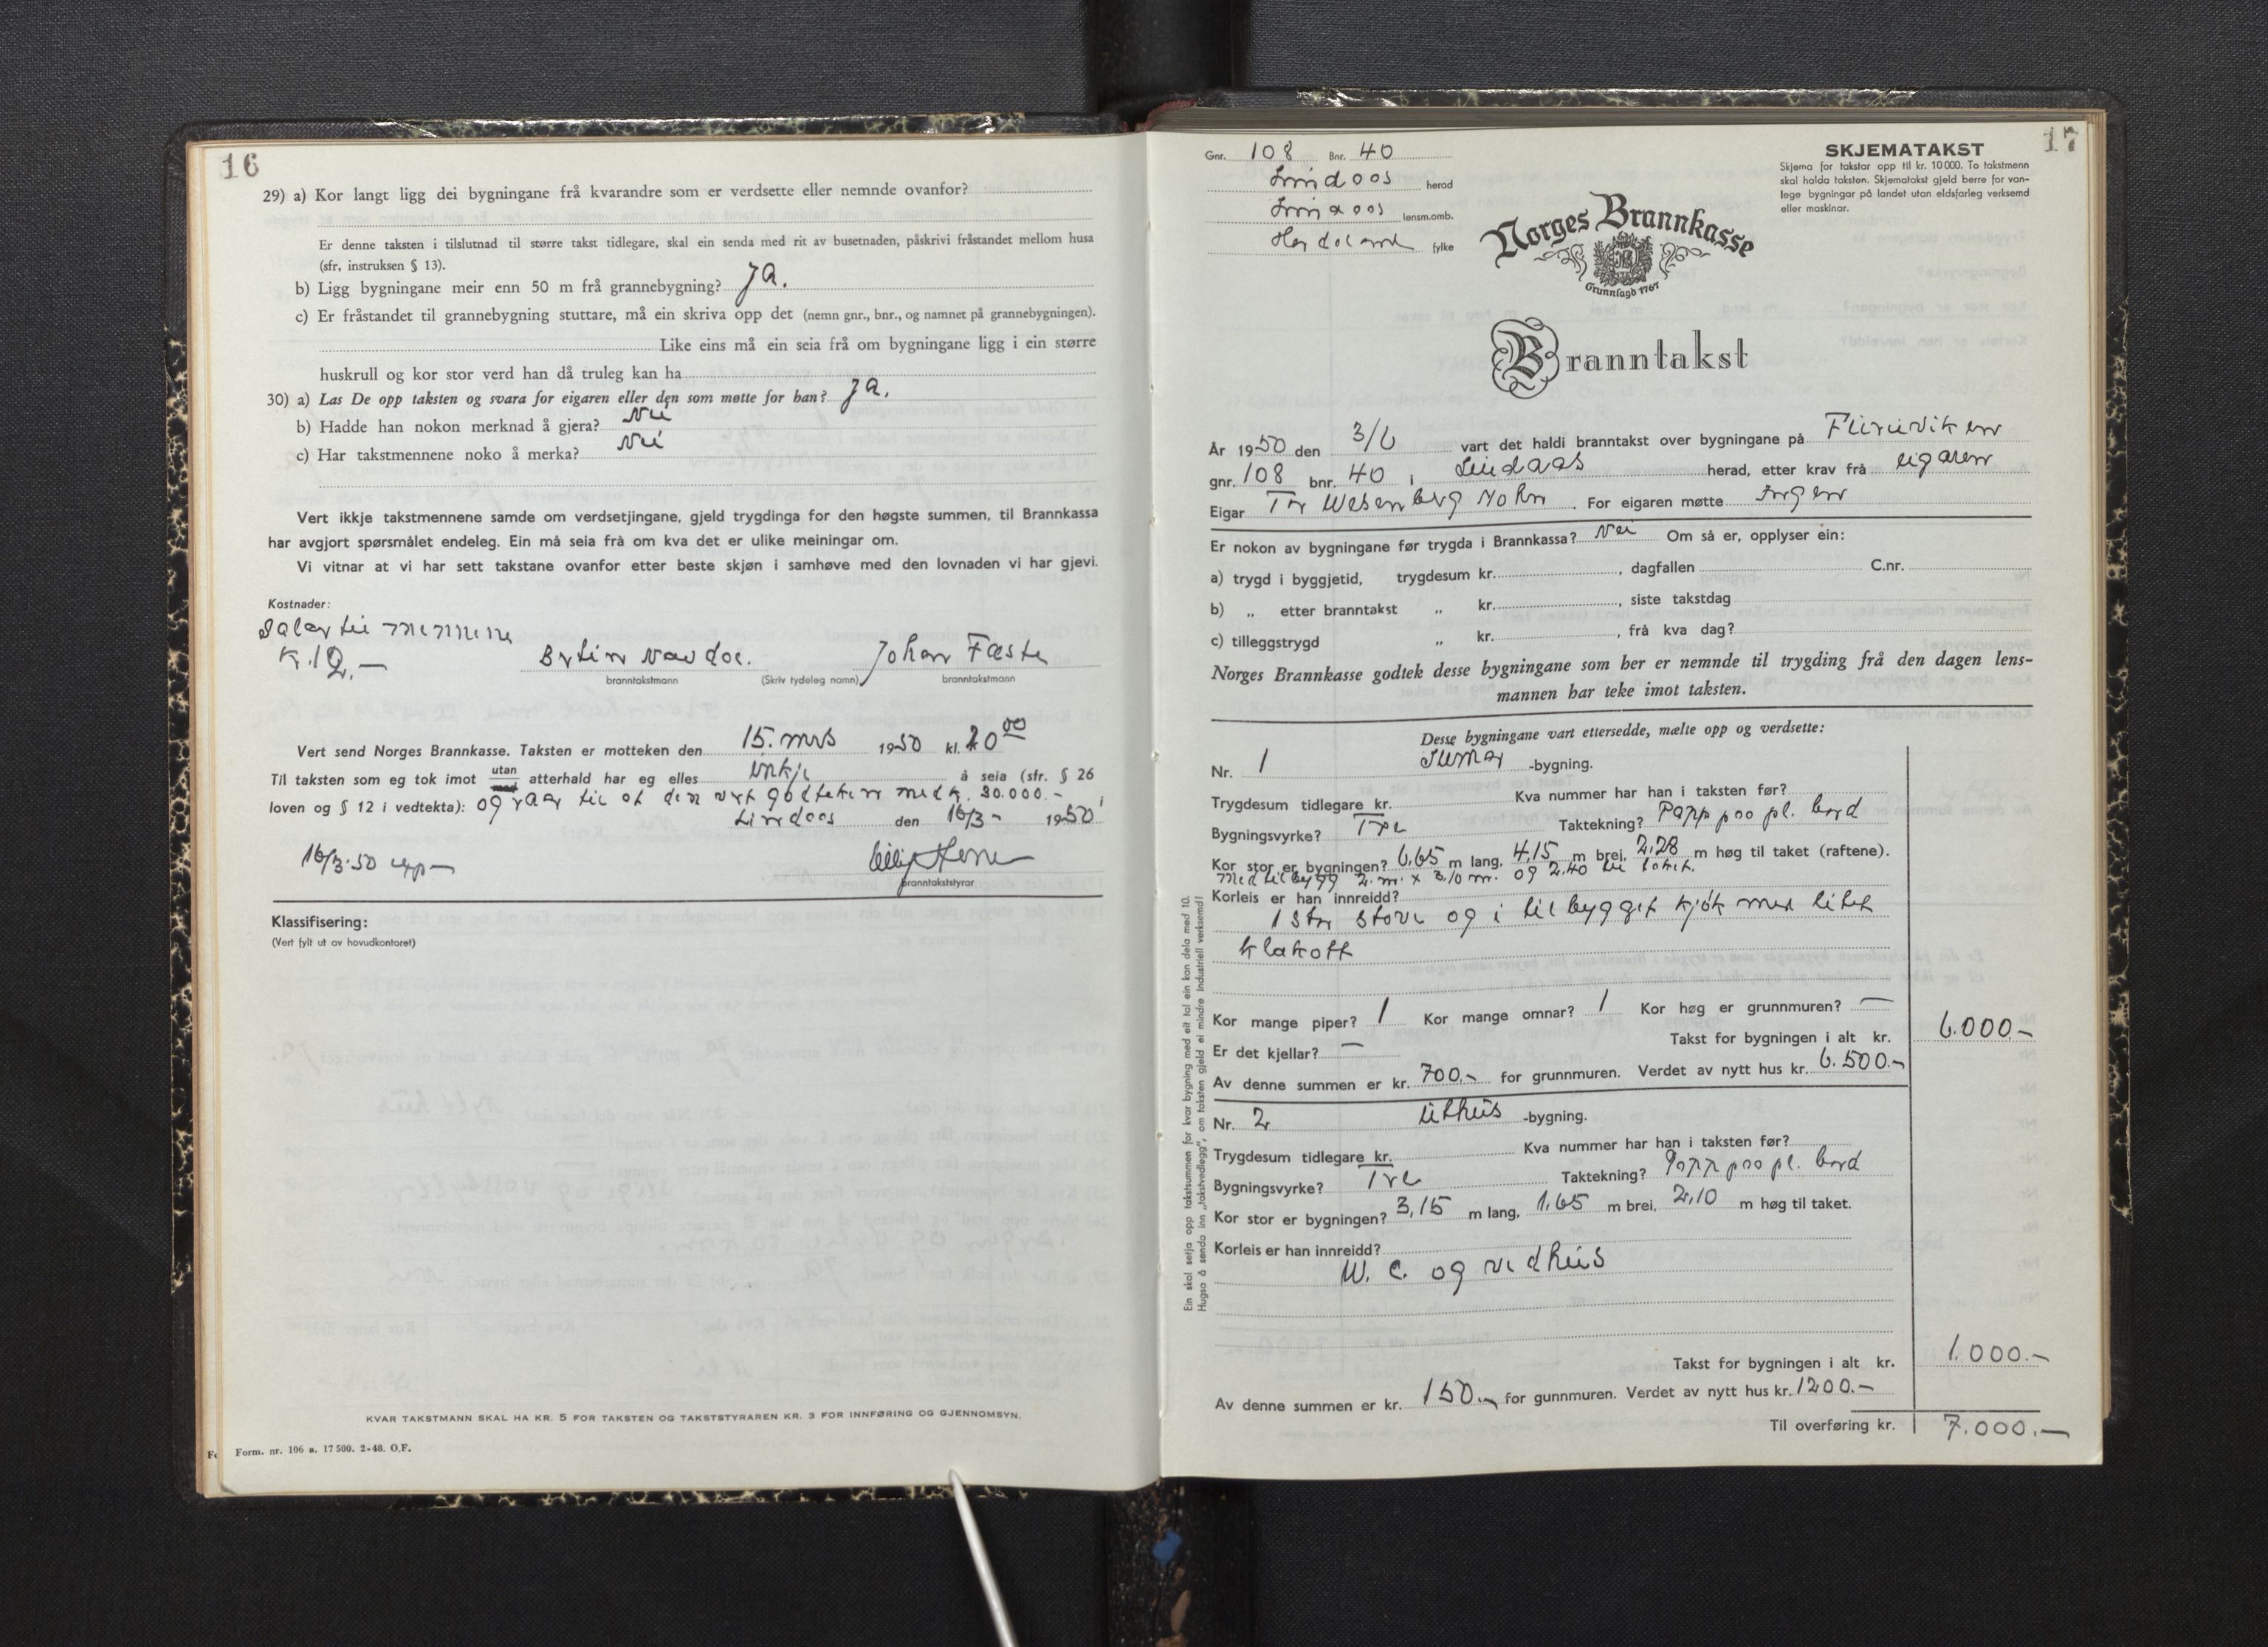 16
29) a) Kor langt ligg dei bygningane frå kvarandre som er verdsette eller nemnde ovanfor?
Er denne taksten i tilslutnad til større takst tidlegare, skal ein senda med rit av busetnaden, påskrivi fråstandet mellom husa
(sfr, instruksen § 13).
b) Ligg bygningane meir enn 50 m frå grannebygning? ja.
c) Er fråstandet til grannebygning stuttare, må ein skriva opp det (nemn gnr., bnr., og namnet på grannebygningen).
Like eins må ein seia frå om bygningane ligg i ein større
huskrull og kor stor verd han då truleg kan ha
30) a) Las De opp taksten og svara for eigaren eller den som møtte for han? ja.
b) Hadde han nokon merknad å gjera? Nei
c) Har takstmennene noko å merka? Nei
Vert ikkje takstmennene samde om verdsetjingane, gjeld trygdinga for den høgste summen, til Brannkassa
har avgjort spørsmålet endeleg. Ein må seia frå om kva det er ulike meiningar om.
Vi vitnar at vi har sett takstane ovanfor etter beste skjøn i samhøve med den lovnaden vi har gjevi.
Kostnader:
Salær til mennene
K. 12.—
Johan Fæste
branntakstmann (Skriv tydeleg namn) branntakstmann
Vert send Norges Brannkasse. Taksten er motteken den 15. mrs 1950 kl. 20 00
Til taksten som eg tok imot utan med atterhald har eg elles inkje å seia (sfr. § 26
loven og § 12 i vedtekta): og raar til at den vert godteken med k. 30.000.—
Lindaas den 16/3 - 1950
16/3-50
branntakststyrar
Klassifisering:
(Vert fylt ut av hovudkontoret)
KVAR TAKSTMANN SKAL HA KR. 5 FOR TAKSTEN OG TAKSTSTYRAREN KR. 3 FOR INNFØRING OG GJENNOMSYN.
Form. nr. 106 a. 17 500. 2-48. O.F.
17
Gnr. 108 Bnr. 40
Lindaas herad
Lindaas lensm.omb.
Hordaland fylke
SKJEMATAKST
Skjema for takstar opp til kr. 10 000. To takstmenn
skal halda taksten. Skjematakst gjeld berre for van-
lege bygningar på landet utan eldsfarleg verksemd
eller maskinar.
Norges Brannkasse
Grunnlagd 1767
Branntakst
År 1950 den 3/6 vart det haldi branntakst over bygningane på
gnr. 108 bnr. 40 i Lindaas herad, etter krav frå eigaren
Eigar Tr Wesenberg Mohn. For eigaren møtte Ingen
Er nokon av bygningane før trygda i Brannkassa? Nei Om så er, opplyser ein:
a) trygd i byggjetid, trygdesum kr. , dagfallen C.nr.
b) „ etter branntakst „ kr. , siste takstdag
c) tilleggstrygd „ kr. , frå kva dag?
Norges Brannkasse godtek desse bygningane som her er nemnde til trygding frå den dagen lens-
mannen har teke imot taksten.
Desse bygningane vart ettersedde, mælte opp og verdsette:
Nr. 1 Sumar -bygning.
Trygdesum tidlegare kr. Kva nummer har han i taksten før?
Bygningsvyrke? Tre Taktekning? Papp paa pl. bord
Kor stor er bygningen? 6,65 m lang, 4,15 m brei, 2,28 m høg til taket (raftene).
Med tilbygg 2. m. x 3,10 m. og 2.40 til taket.
Korleis er han innreidd?
1 Stor stove og i tilbygget kjøk med litet
klakott
Kor mange piper? 1 Kor mange omnar? 1 Kor høg er grunnmuren? —
Er det kjellar? — Takst for bygningen i alt kr. 6.000.-
Av denne summen er kr. 700.- for grunnmuren. Verdet av nytt hus kr. 6.500.-
Nr. 2 Uthus -bygning.
Trygdesum tidlegare kr. Kva nummer har han i taksten før?
Bygningsvyrke? Tre Taktekning? Papp paa pl. bord
Kor stor er bygningen? 3,15 m lang, 1,65 m brei, 2,10 m høg til taket.
Korleis er han innreidd?
W. C. og vedhus
Takst for bygningen i alt kr. 1.000.-
Av denne summen er kr. 150.- for gunnmuren. Verdet av nytt hus kr. 1200.-
Til overføring kr. 7.000.-
Ein skal setja opp takstsummen for kvar bygning med eit tal ein kan dela med 10.
Hugsa å senda inn „takstvedlegg", om taksten gjeld ei mindre industriell verksemd!